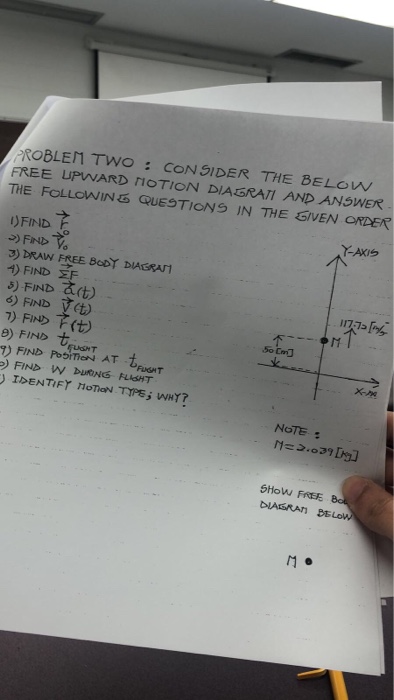 PROBLEM TWO : CONSIDER THE BELOW
FREE UPWARD MOTION DIAGRAM AND ANSWER
THE FOLLOWING QUESTIONS IN THE GIVEN ORDER
1) FIND r⃗₀
2) FIND V⃗₀
3) DRAW FREE BODY DIAGRAM
4) FIND ΣF⃗
5) FIND a⃗(t)
6) FIND V⃗(t)
7) FIND r⃗(t)
8) FIND t FLIGHT
9) FIND POSITION AT t FLIGHT
) FIND W DURING FLIGHT
) IDENTIFY MOTION TYPE; WHY?
Y-AXIS
M
50 [m]
NOTE :
M=2.039 [kg]
SHOW FREE
DIAGRAM BELOW
M